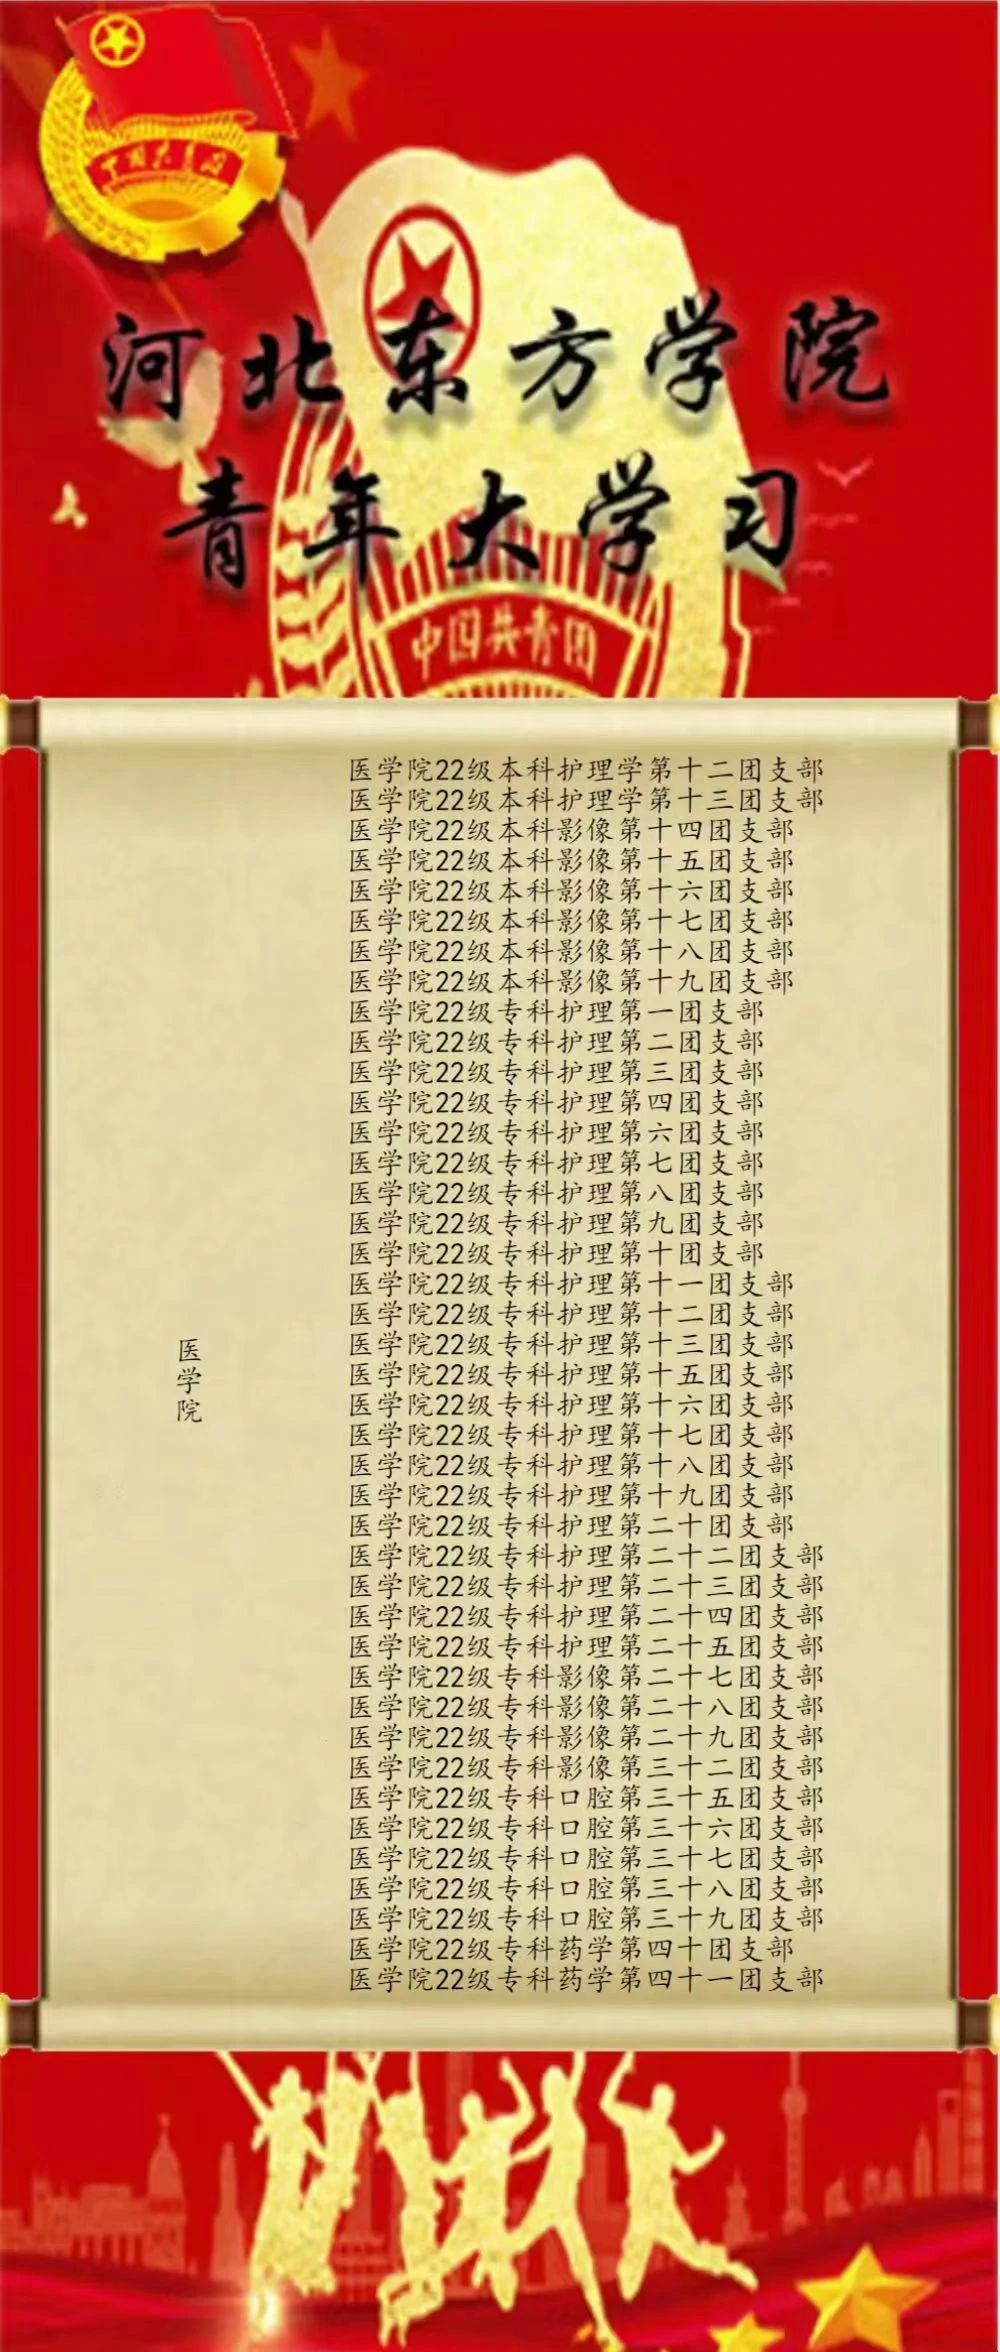 中国共青团
河北东方学院
青年大学习
中国共青团
医学院22级本科护理学第十二团支部
医学院22级本科护理学第十三团支部
医学院22级本科影像第十四团支部
医学院22级本科影像第十五团支部
医学院22级本科影像第十六团支部
医学院22级本科影像第十七团支部
医学院22级本科影像第十八团支部
医学院22级本科影像第十九团支部
医学院22级专科护理第一团支部
医学院22级专科护理第二团支部
医学院22级专科护理第三团支部
医学院22级专科护理第四团支部
医学院22级专科护理第六团支部
医学院22级专科护理第七团支部
医学院22级专科护理第八团支部
医学院22级专科护理第九团支部
医学院22级专科护理第十团支部
医学院22级专科护理第十一团支部
医学院22级专科护理第十二团支部
医学院22级专科护理第十三团支部
医学院22级专科护理第十五团支部
医学院22级专科护理第十六团支部
医学院22级专科护理第十七团支部
医学院22级专科护理第十八团支部
医学院22级专科护理第十九团支部
医学院22级专科护理第二十团支部
医学院22级专科护理第二十二团支部
医学院22级专科护理第二十三团支部
医学院22级专科护理第二十四团支部
医学院22级专科护理第二十五团支部
医学院22级专科影像第二十七团支部
医学院22级专科影像第二十八团支部
医学院22级专科影像第二十九团支部
医学院22级专科影像第三十二团支部
医学院22级专科口腔第三十五团支部
医学院22级专科口腔第三十六团支部
医学院22级专科口腔第三十七团支部
医学院22级专科口腔第三十八团支部
医学院22级专科口腔第三十九团支部
医学院22级专科药学第四十团支部
医学院22级专科药学第四十一团支部
医学院